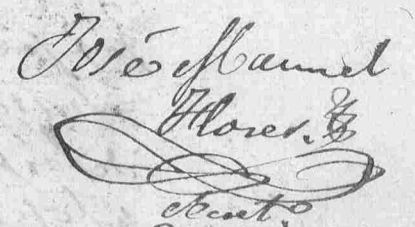 José Manuel
Flores.
Secret.